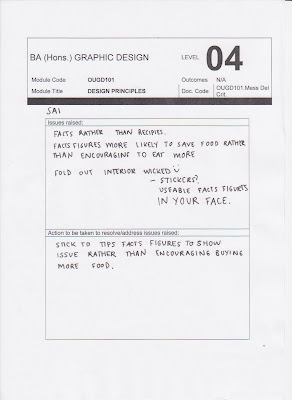 BA (Hons.) GRAPHIC DESIGN
LEVEL 04
Module Code OUGD101 Outcomes N/A
Module Title DESIGN PRINCIPLES Doc. Code OUGD101 Mess Del Crit
SAI
Issues raised:
FACTS RATHER THAN RECIPIES.
FACTS FIGURES MORE LIKELY TO SAVE FOOD RATHER
THAN ENCOURAGING TO EAT MORE
FOLD OUT INTERIOR WICKED
- STICKERS?
USEABLE FACTS FIGURES
IN YOUR FACE.
Action to be taken to resolve/address issues raised:
STICK TO TIPS FACTS FIGURES TO SHOW
ISSUE RATHER THAN ENCOURAGING BUYING
MORE FOOD.